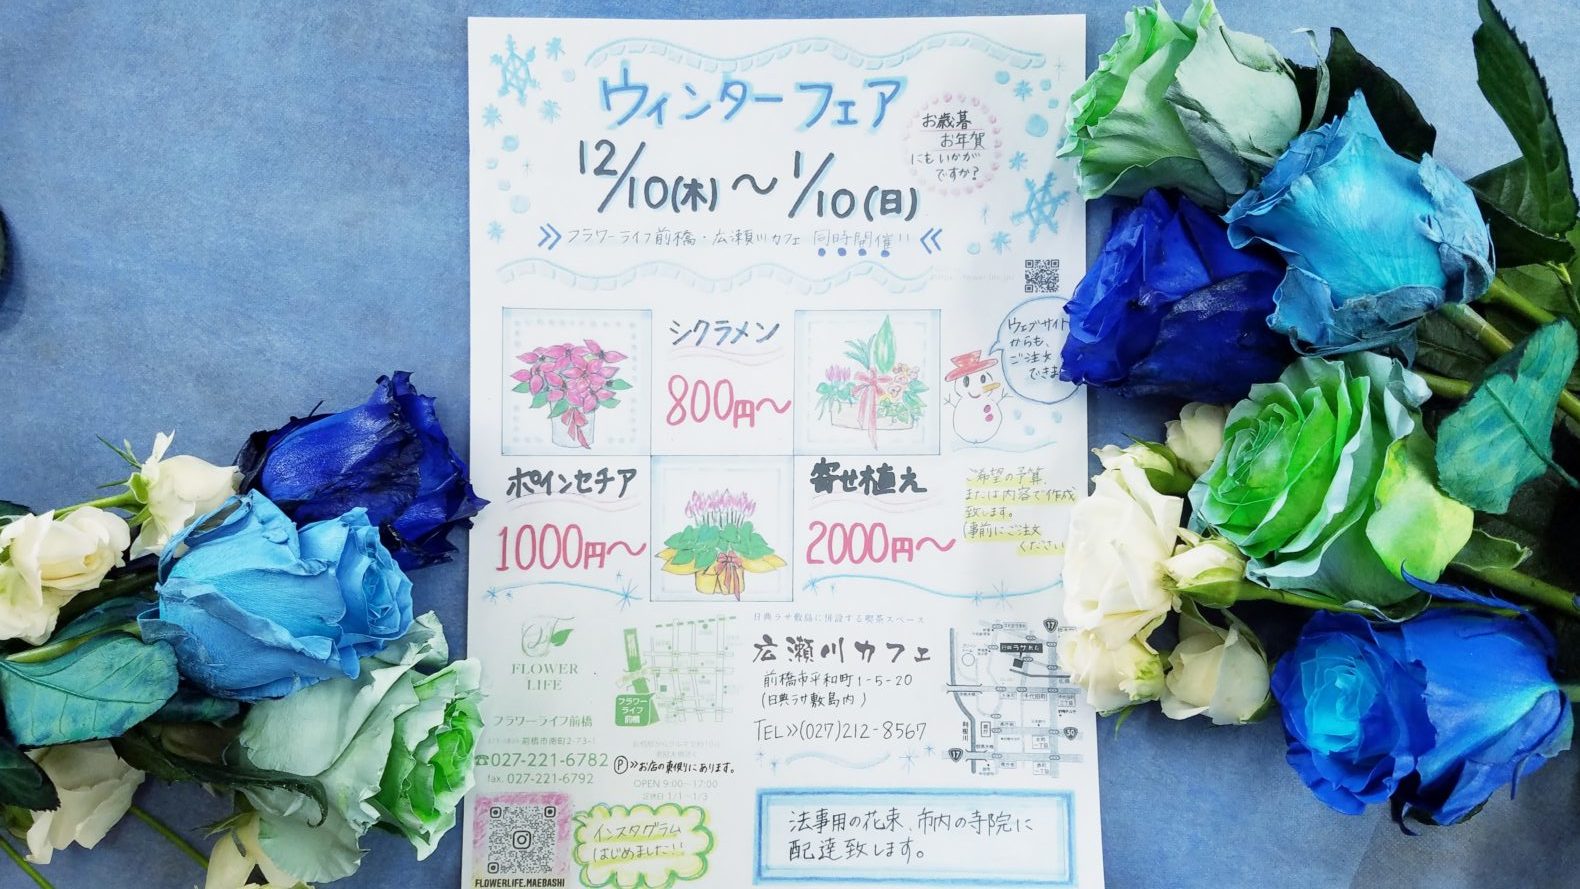 ウィンターフェア
お歳暮
お年賀
にもいかが
ですか?
12/10(木)～1/10(日)
》フラワーライフ前橋・広瀬川カフェ 同時開催!!《
シクラメン
800円～
ウェブサイト
からも、
ご注文
できま
ポインセチア
1000円～
寄せ植え
2000円～
ご希望の予算、
または内容で作成
致します。
(事前にご注文
ください
FLOWER
LIFE
フラワーライフ前橋
前橋市南町2-73-1
☎027-221-6782
fax. 027-221-6792
フラワー
ライフ
前橋
Ⓟ》お店の東側にあります。
OPEN 9:00～17:00
定休日 1/1～1/3
日典ラサ敷島に併設する喫茶スペース
広瀬川カフェ
前橋市平和町1-5-20
(日典ラサ敷島内)
TEL》(027)212-8567
17
50
17
FLOWERLIFE.MAEBASHI
インスタグラム
はじめました!!
法事用の花束、市内の寺院に
配達致します。